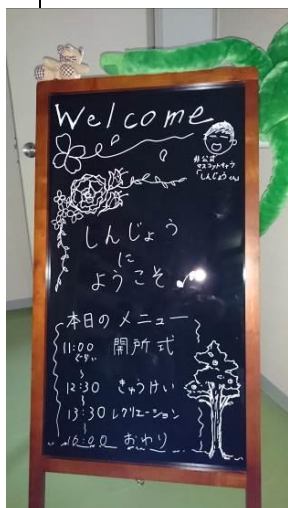 Welcome
非公式
マスコットキャラ
「しんじょうくん」
しんじょう
に
ようこそ
本日のメニュー
11:00 開所式
ぐらい
〜
12:30 きゅうけい
〜
13:30 レクリエーション
〜
16:00 おわり